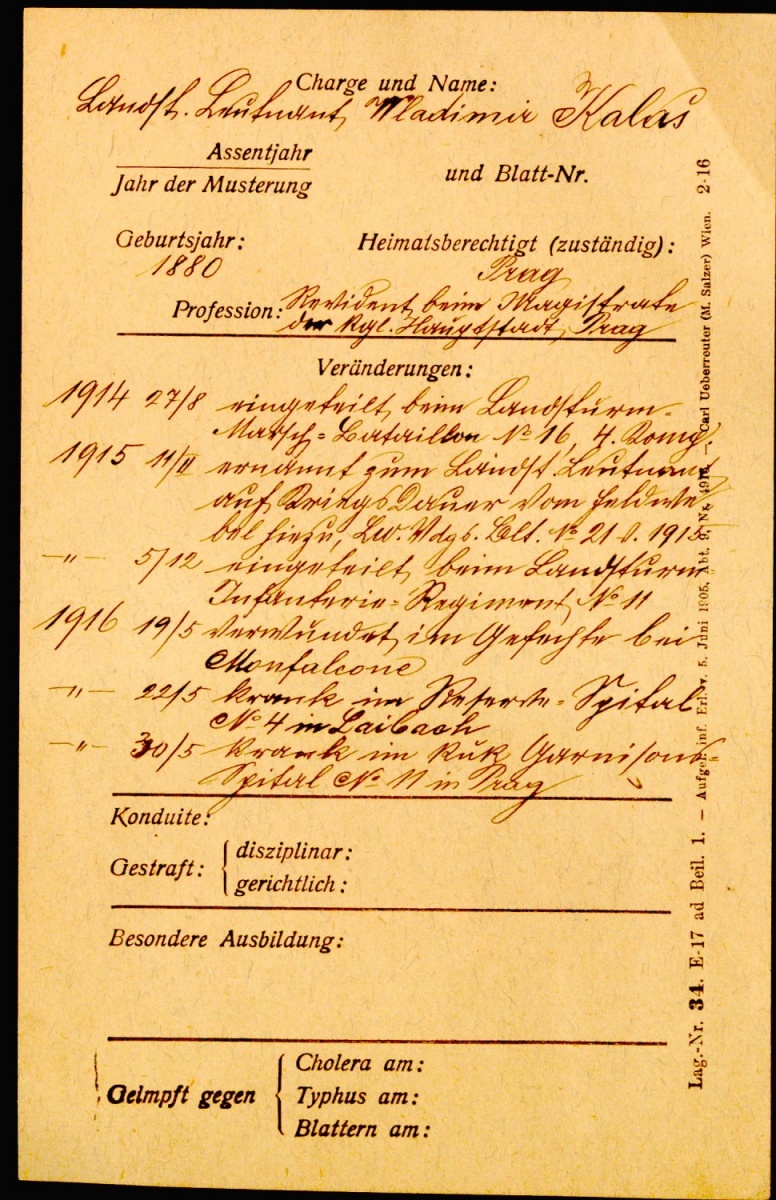 Charge und Name:
Landst. Leutnant Wladimir Kalas
Assentjahr
Jahr der Musterung
und Blatt-Nr.
Geburtsjahr:
1880
Heimatsberechtigt (zuständig):
Prag
Profession: Revident beim Magistrate
der kgl. Hauptstadt Prag
Veränderungen:
1914 27/8 eingeteilt beim Landsturm-
Marsch-Bataillon No 16, 4. Komp.
1915 11/II ernannt zum Landst. Leutnant
auf Kriegsdauer vom Feldwe
bel hiezu, Lw. Vdgs. Blt. No 21 v. 1915
-"- 5/12 eingeteilt beim Landsturm
Infanterie-Regiment No 11
1916 19/5 verwundet im Gefechte bei
Monfalcone
-"- 22/5 krank im Reserve-Spital
No 4 in Laibach
-"- 30/5 krank im kuk Garnisons-
Spital No 11 in Prag
Konduite:
Gestraft:
disziplinar:
gerichtlich:
Besondere Ausbildung:
Geimpft gegen
Cholera am:
Typhus am:
Blattern am:
Lag.-Nr. 34. E-17 ad Beil. 1. — Aufgel. inf. Erl. v. 5. Juni 1905, Abt. 9, Nr. Carl Ueberreuter (M. Salzer) Wien. 2-16